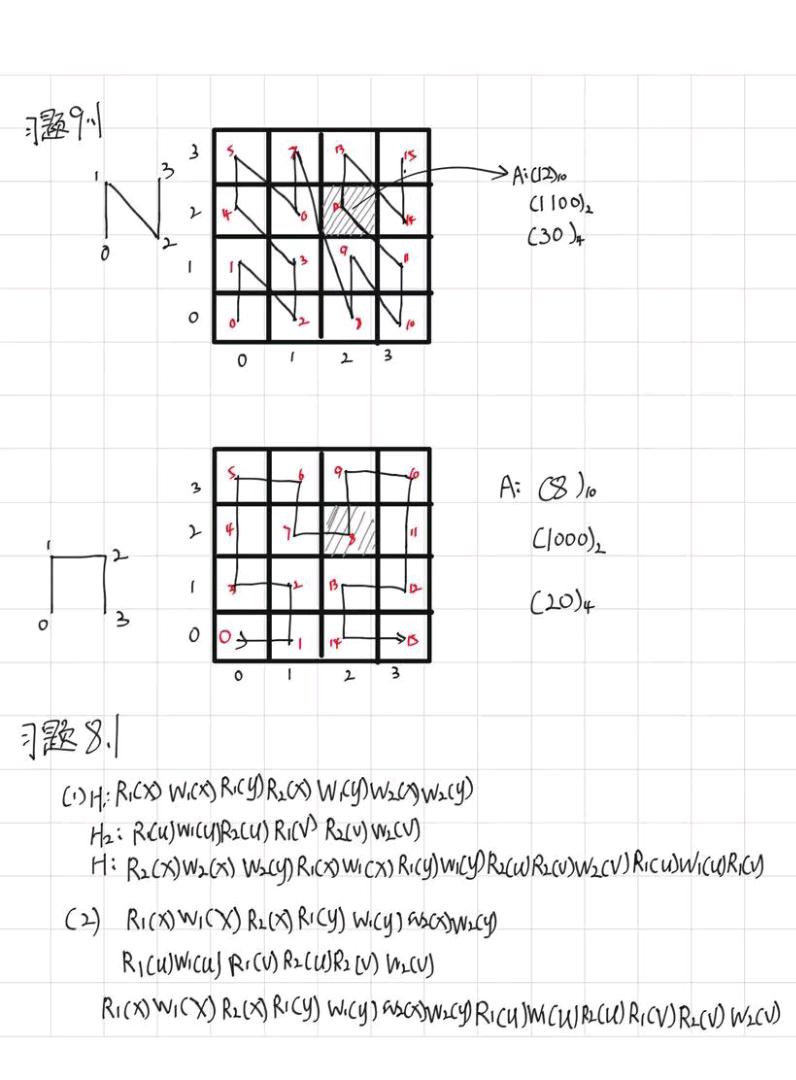 习题9.1
1 3
0 2
3 5 7 13 15
2 4 6 12 14
1 1 3 9 11
0 0 2 8 10
0 1 2 3
A:(12)₁₀
(1100)₂
(30)₄
1 2
0 3
3 5 6 9 10
2 4 7 8 11
1 3 2 13 12
0 0 1 14 15
0 1 2 3
A: (8)₁₀
(1000)₂
(20)₄
习题8.1
(1)H: R₁(x) W₁(x) R₁(y) R₂(x) W₁(y) W₂(x) W₂(y)
H₂: R₁(u) W₁(u) R₂(u) R₁(v) R₂(v) W₂(v)
H: R₂(x) W₂(x) W₂(y) R₁(x) W₁(x) R₁(y) W₁(y) R₂(u) R₂(v) W₂(v) R₁(u) W₁(u) R₁(v)
(2) R₁(x) W₁(x) R₂(x) R₁(y) W₁(y) W₂(x) W₂(y)
R₁(u) W₁(u) R₁(v) R₂(u) R₂(v) W₂(v)
R₁(x) W₁(x) R₂(x) R₁(y) W₁(y) W₂(x) W₂(y) R₁(u) W₁(u) R₂(u) R₁(v) R₂(v) W₂(v)